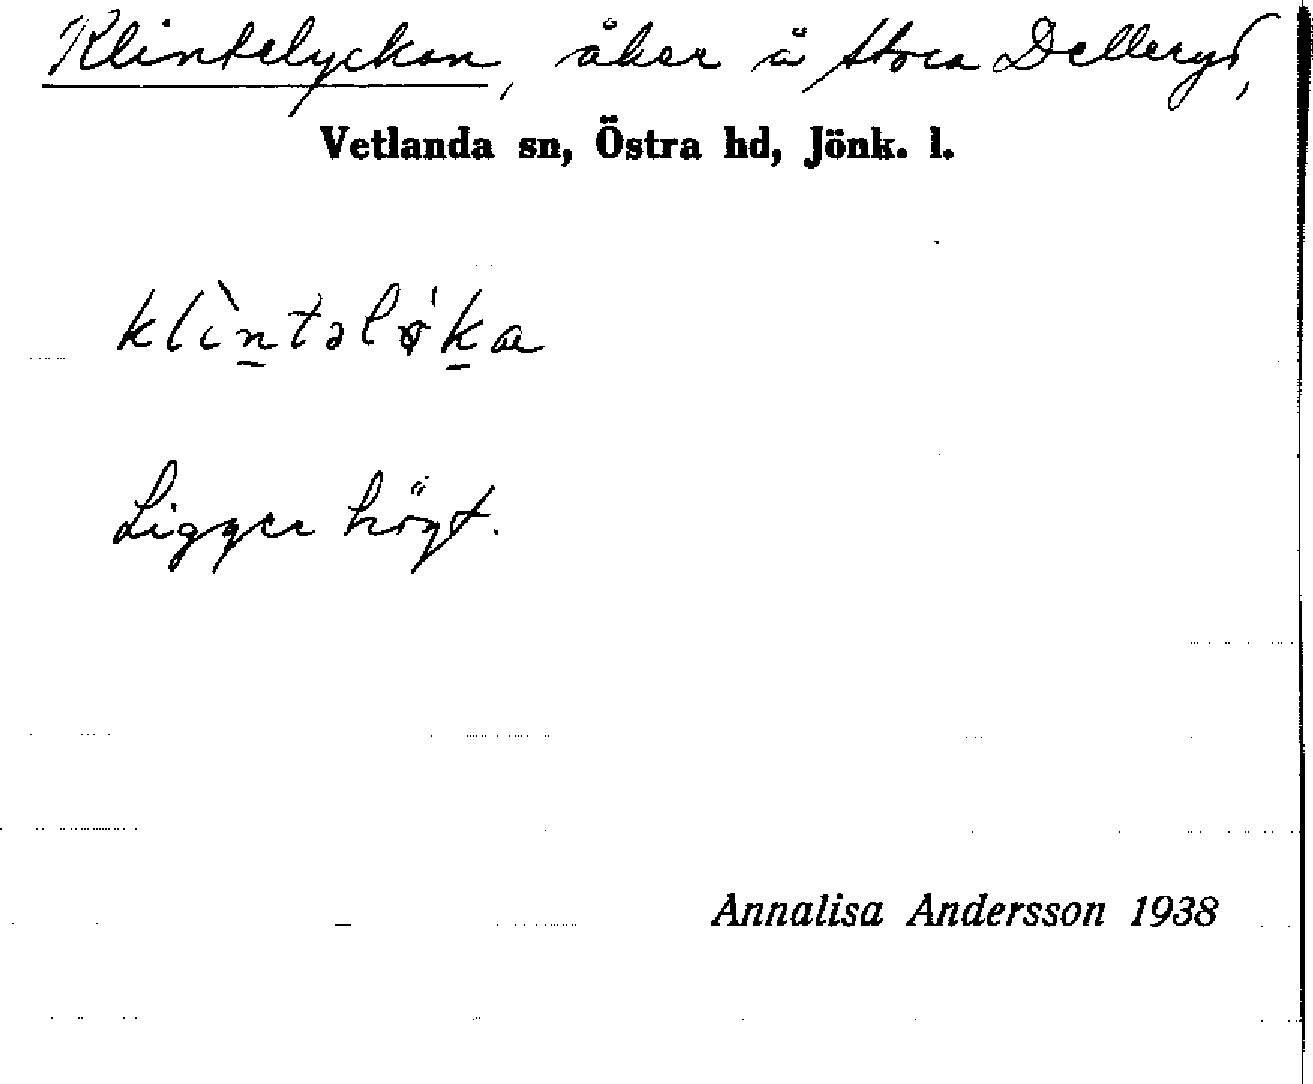 Klintelyckan, åker å Stora Delleryd,
Vetlanda sn, Östra hd, Jönk. l.
klìntəlø̍ka
Ligger högt.
Annalisa Andersson 1938